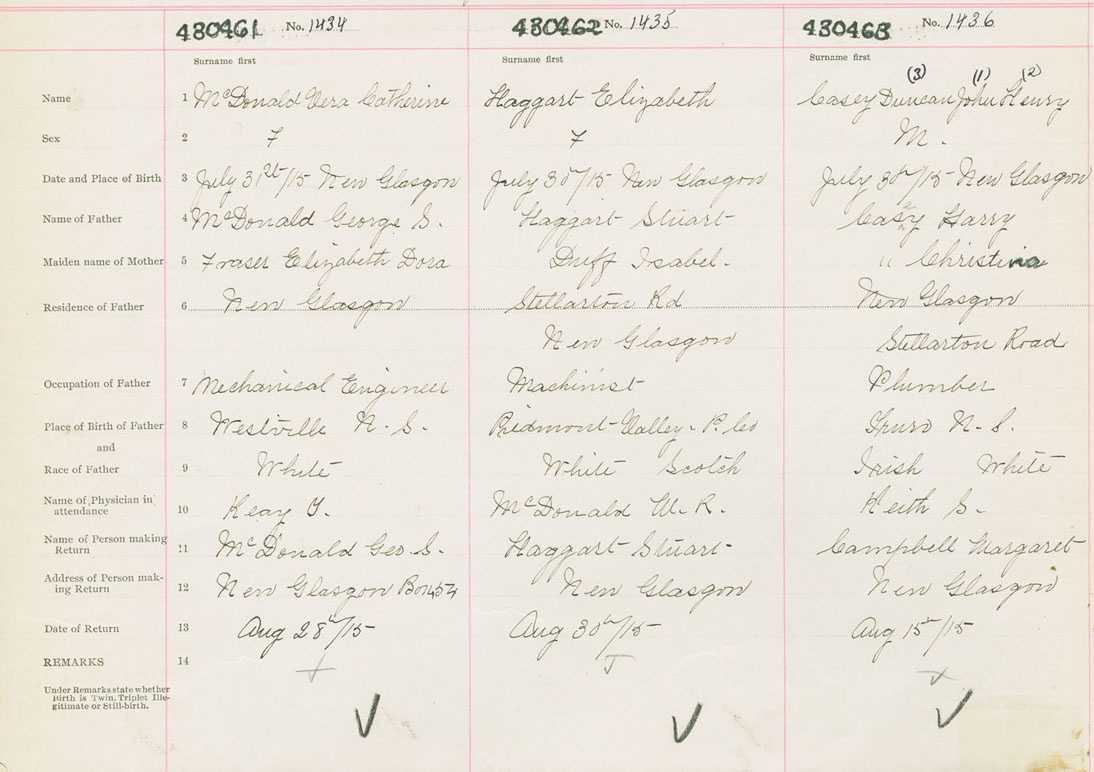 480461 No. 1434 480462 No. 1435 480463 No. 1436
Surname first Surname first Surname first
(3) (1) (2)
Name 1 McDonald Vera Catherine Haggart Elizabeth Casey Duncan John Henry
Sex 2 F F M.
Date and Place of Birth 3 July 31st/15 New Glasgow July 30/15 New Glasgow July 30th/15 New Glasgow
Name of Father 4 McDonald George S. Haggart Stuart Casey Harry
Maiden name of Mother 5 Fraser Elizabeth Dora Duff Isabel. " Christina
Residence of Father 6 New Glasgow Stellarton Rd New Glasgow
New Glasgow Stellarton Road
Occupation of Father 7 Mechanical Engineer Machinist Plumber
Place of Birth of Father 8 Westville N.S. Piedmont Valley - P. Co Truro N.S.
and
Race of Father 9 White White Scotch Irish White
Name of Physician in
attendance 10 Keay T. McDonald W. R. Keith S.
Name of Person making
Return 11 McDonald Geo. S. Haggart Stuart Campbell Margaret
Address of Person mak-
ing Return 12 New Glasgow Box 454 New Glasgow New Glasgow
Date of Return 13 Aug 28th/15 Aug 30th/15 Aug 15th/15
REMARKS 14
Under Remarks state whether
Birth is Twin, Triplet Ille-
gitimate or Still-birth.